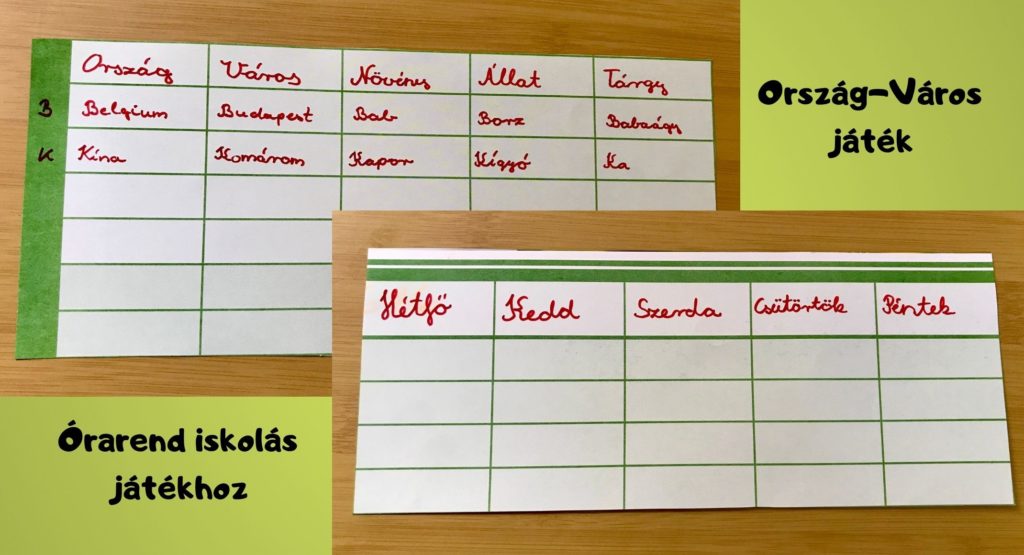 Ország Város Növény Állat Tárgy
B Belgium Budapest Bab Borz Babaágy
K Kína Komárom Kapor Kígyó Ka
Ország-Város
játék
Hétfő Kedd Szerda Csütörtök Péntek
Órarend iskolás
játékhoz